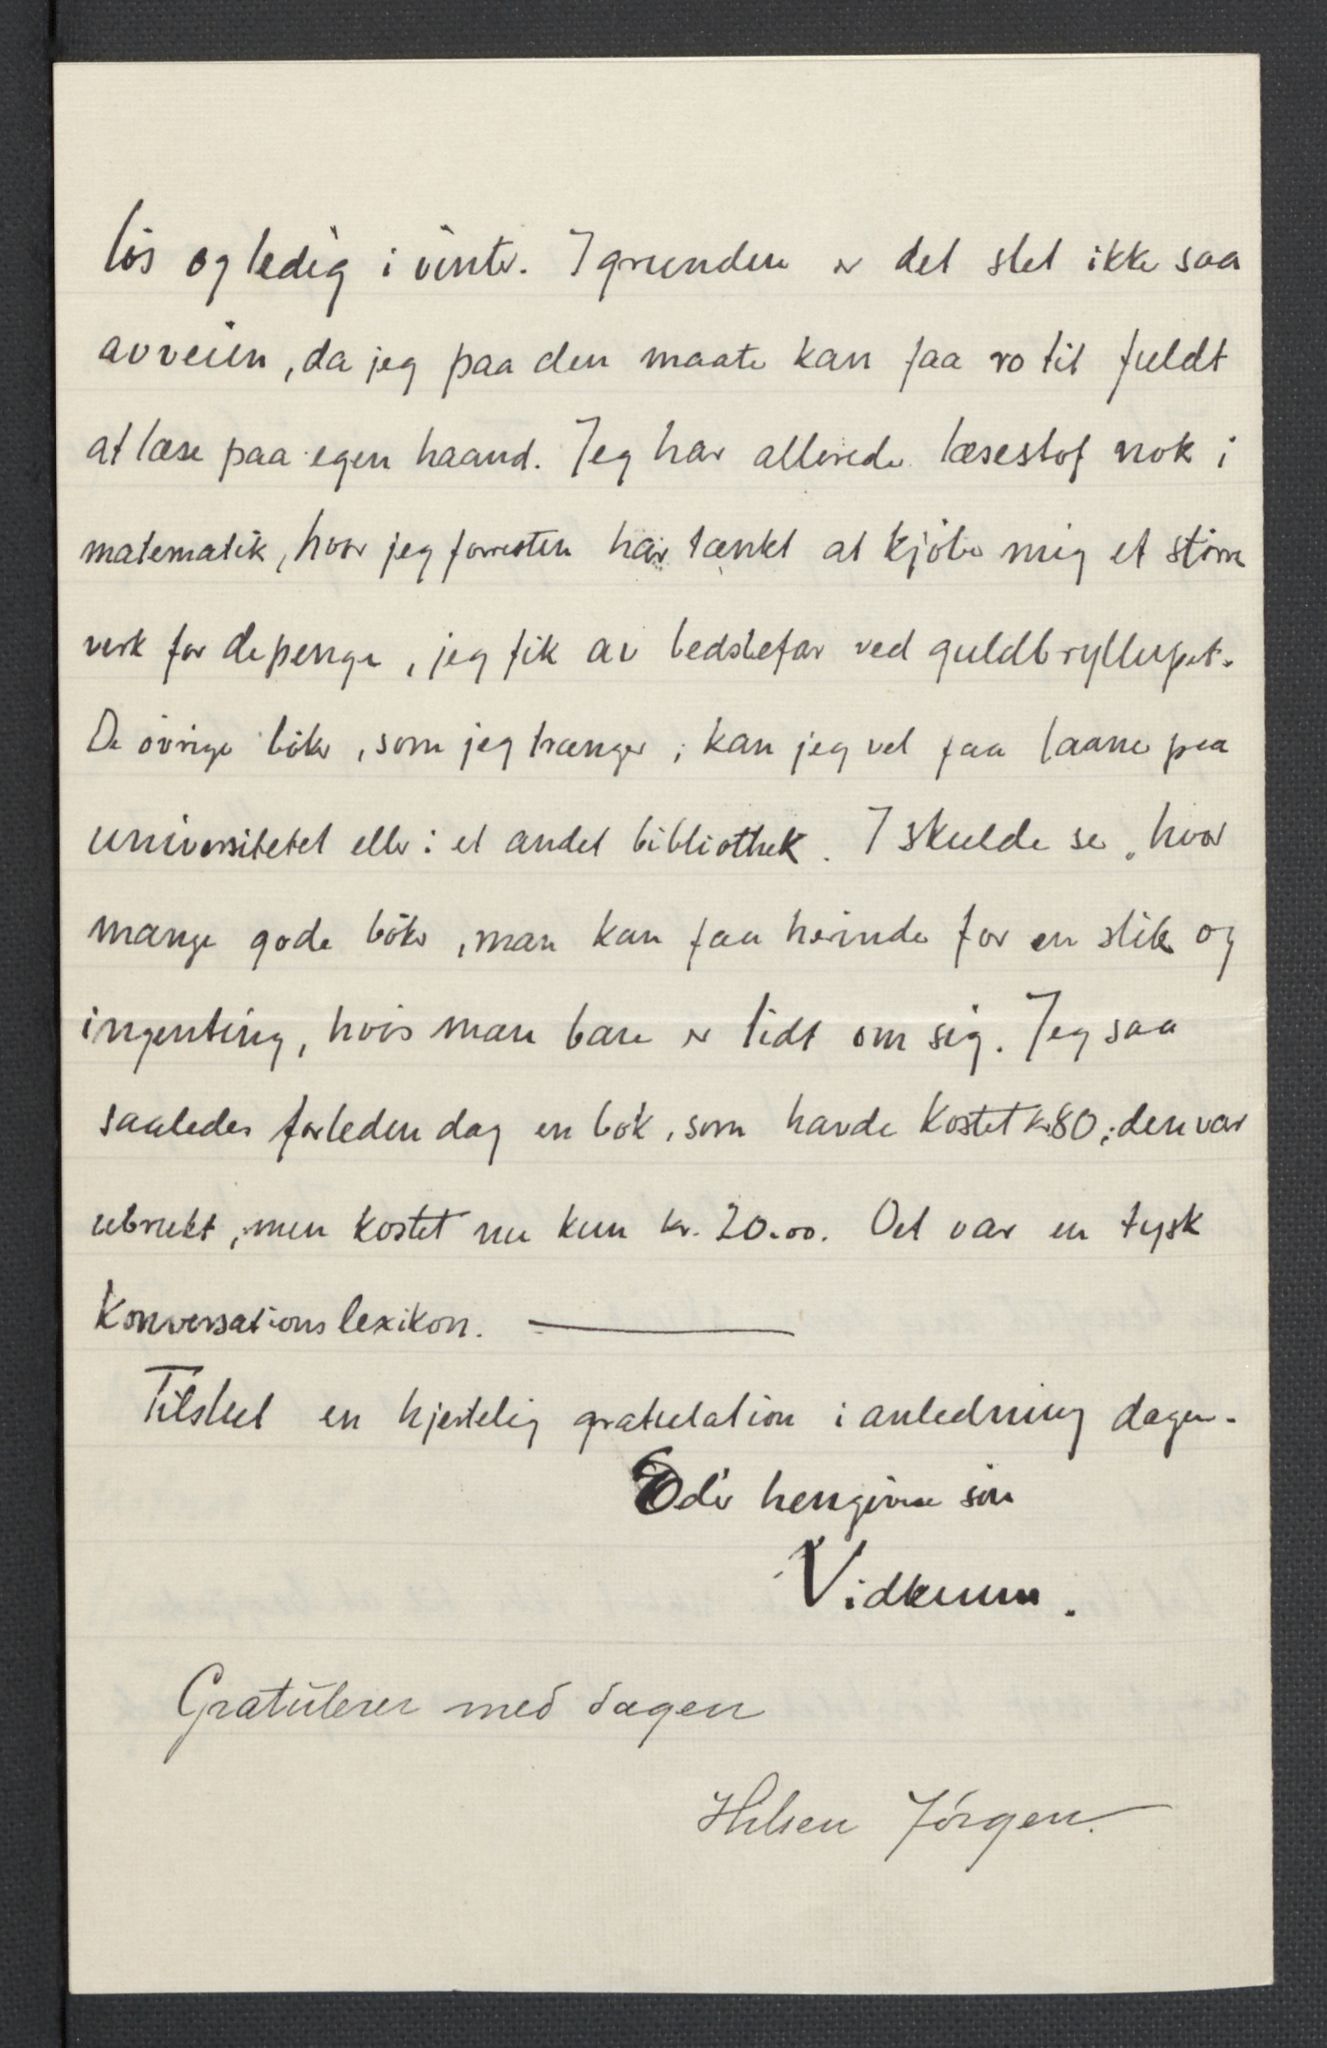 løs og ledig i vinter. I grunden er det slet ikke saa
avveien, da jeg paa den maate kan faa ro til fuldt
at læse paa egen haand. Jeg har allerede læsestof nok i
matematik, hvor jeg forresten har tænkt at kjøbe mig et større
verk for de penge, jeg fik av bedstefar ved guldbryllupet.
De øvrige bøker, som jeg trænger, kan jeg vel faa laane paa
universitetet eller i et andet bibliothek. I skulde se, hvor
mange gode bøker, man kan faa herinde for en slik og
ingenting, hvis man bare er lidt om sig. Jeg saa
saaledes forleden dag en bok, som havde kostet kr 80; den var
ubrukt, men kostet nu kun kr. 20.00. Det var en tysk
Konversationslexikon. ———
Tilslut en hjertelig gratulation i anledning dagen.
Eder hengivne søn
Vidkunn.
Gratulerer med dagen
Hilsen Jørgen.